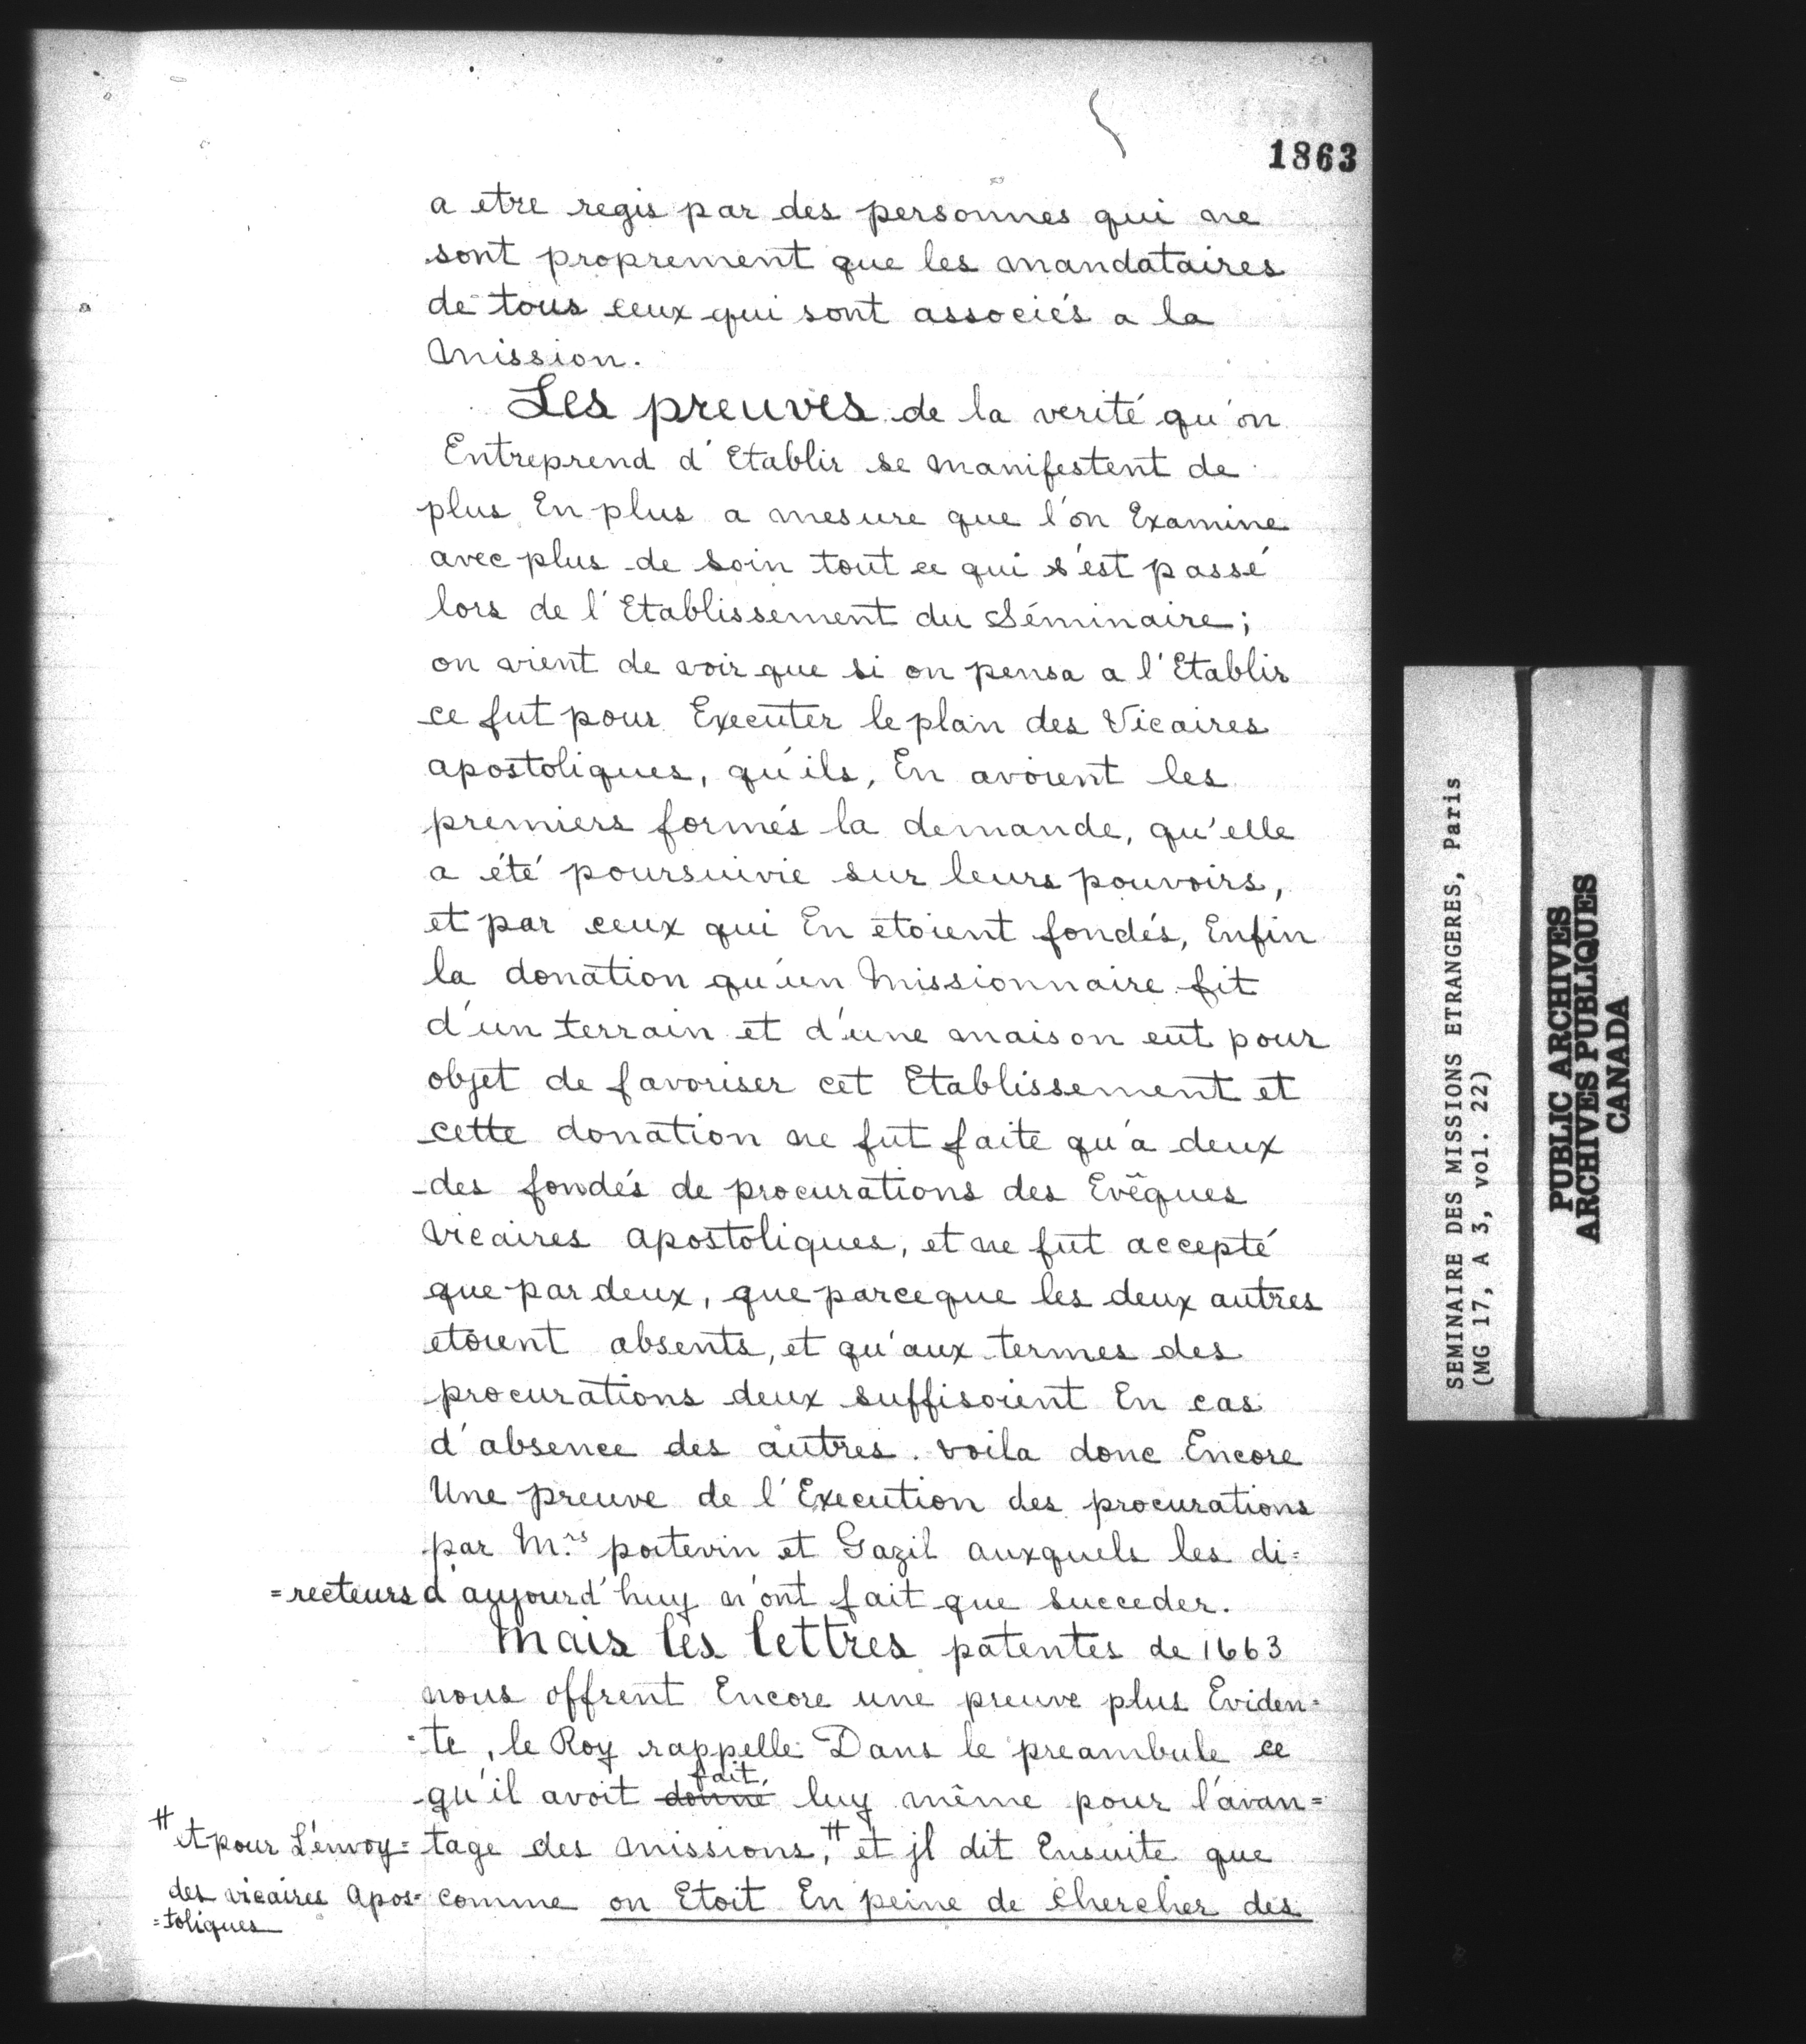 1863
a etre regis par des personnes qui ne
sont proprement que les mandataires
de tous ceux qui sont associés a la
Mission.
Les preuves de la verité qu'on
Entreprend d'Etablir se manifestent de
plus En plus a mesure que l'on Examine
avec plus de soin tout ce qui s'est passé
lors de l'Etablissement du Séminaire;
on vient de voir que si on pensa a l'Etablir
ce fut pour Executer le plan des Vicaires
apostoliques, qu'ils, En avoient les
premiers formés la demande, qu'elle
a été poursuivie sur leurs pouvoirs,
et par ceux qui En etoient fondés, Enfin
la donation qu'un Missionnaire fit
d'un terrain et d'une maison eut pour
objet de favoriser cet Etablissement et
cette donation ne fut faite qu'a deux
des fondés de procurations des Evêques
Vicaires apostoliques, et ne fut accepté
que par deux, que parceque les deux autres
etoient absents, et qu'aux termes des
procurations deux suffisoient En cas
d'absence des autres. voila donc Encore
Une preuve de l'Execution des procurations
par M.rs poitevin et Gazil auxquels les di=
=recteurs d'aujourd'huy n'ont fait que succeder.
Mais les lettres patentes de 1663
nous offrent Encore une preuve plus Eviden=
=te, le Roy rappelle Dans le preambule ce
qu'il avoit donné fait, luy même pour l'avan=
tage des missions, # et jl dit Ensuite que
comme on Etoit En peine de chercher des
# et pour L'envoy=
des vicaires Apos=
=toliques
SEMINAIRE DES MISSIONS ETRANGERES, Paris
(MG 17, A 3, vol. 22)
PUBLIC ARCHIVES
ARCHIVES PUBLIQUES
CANADA